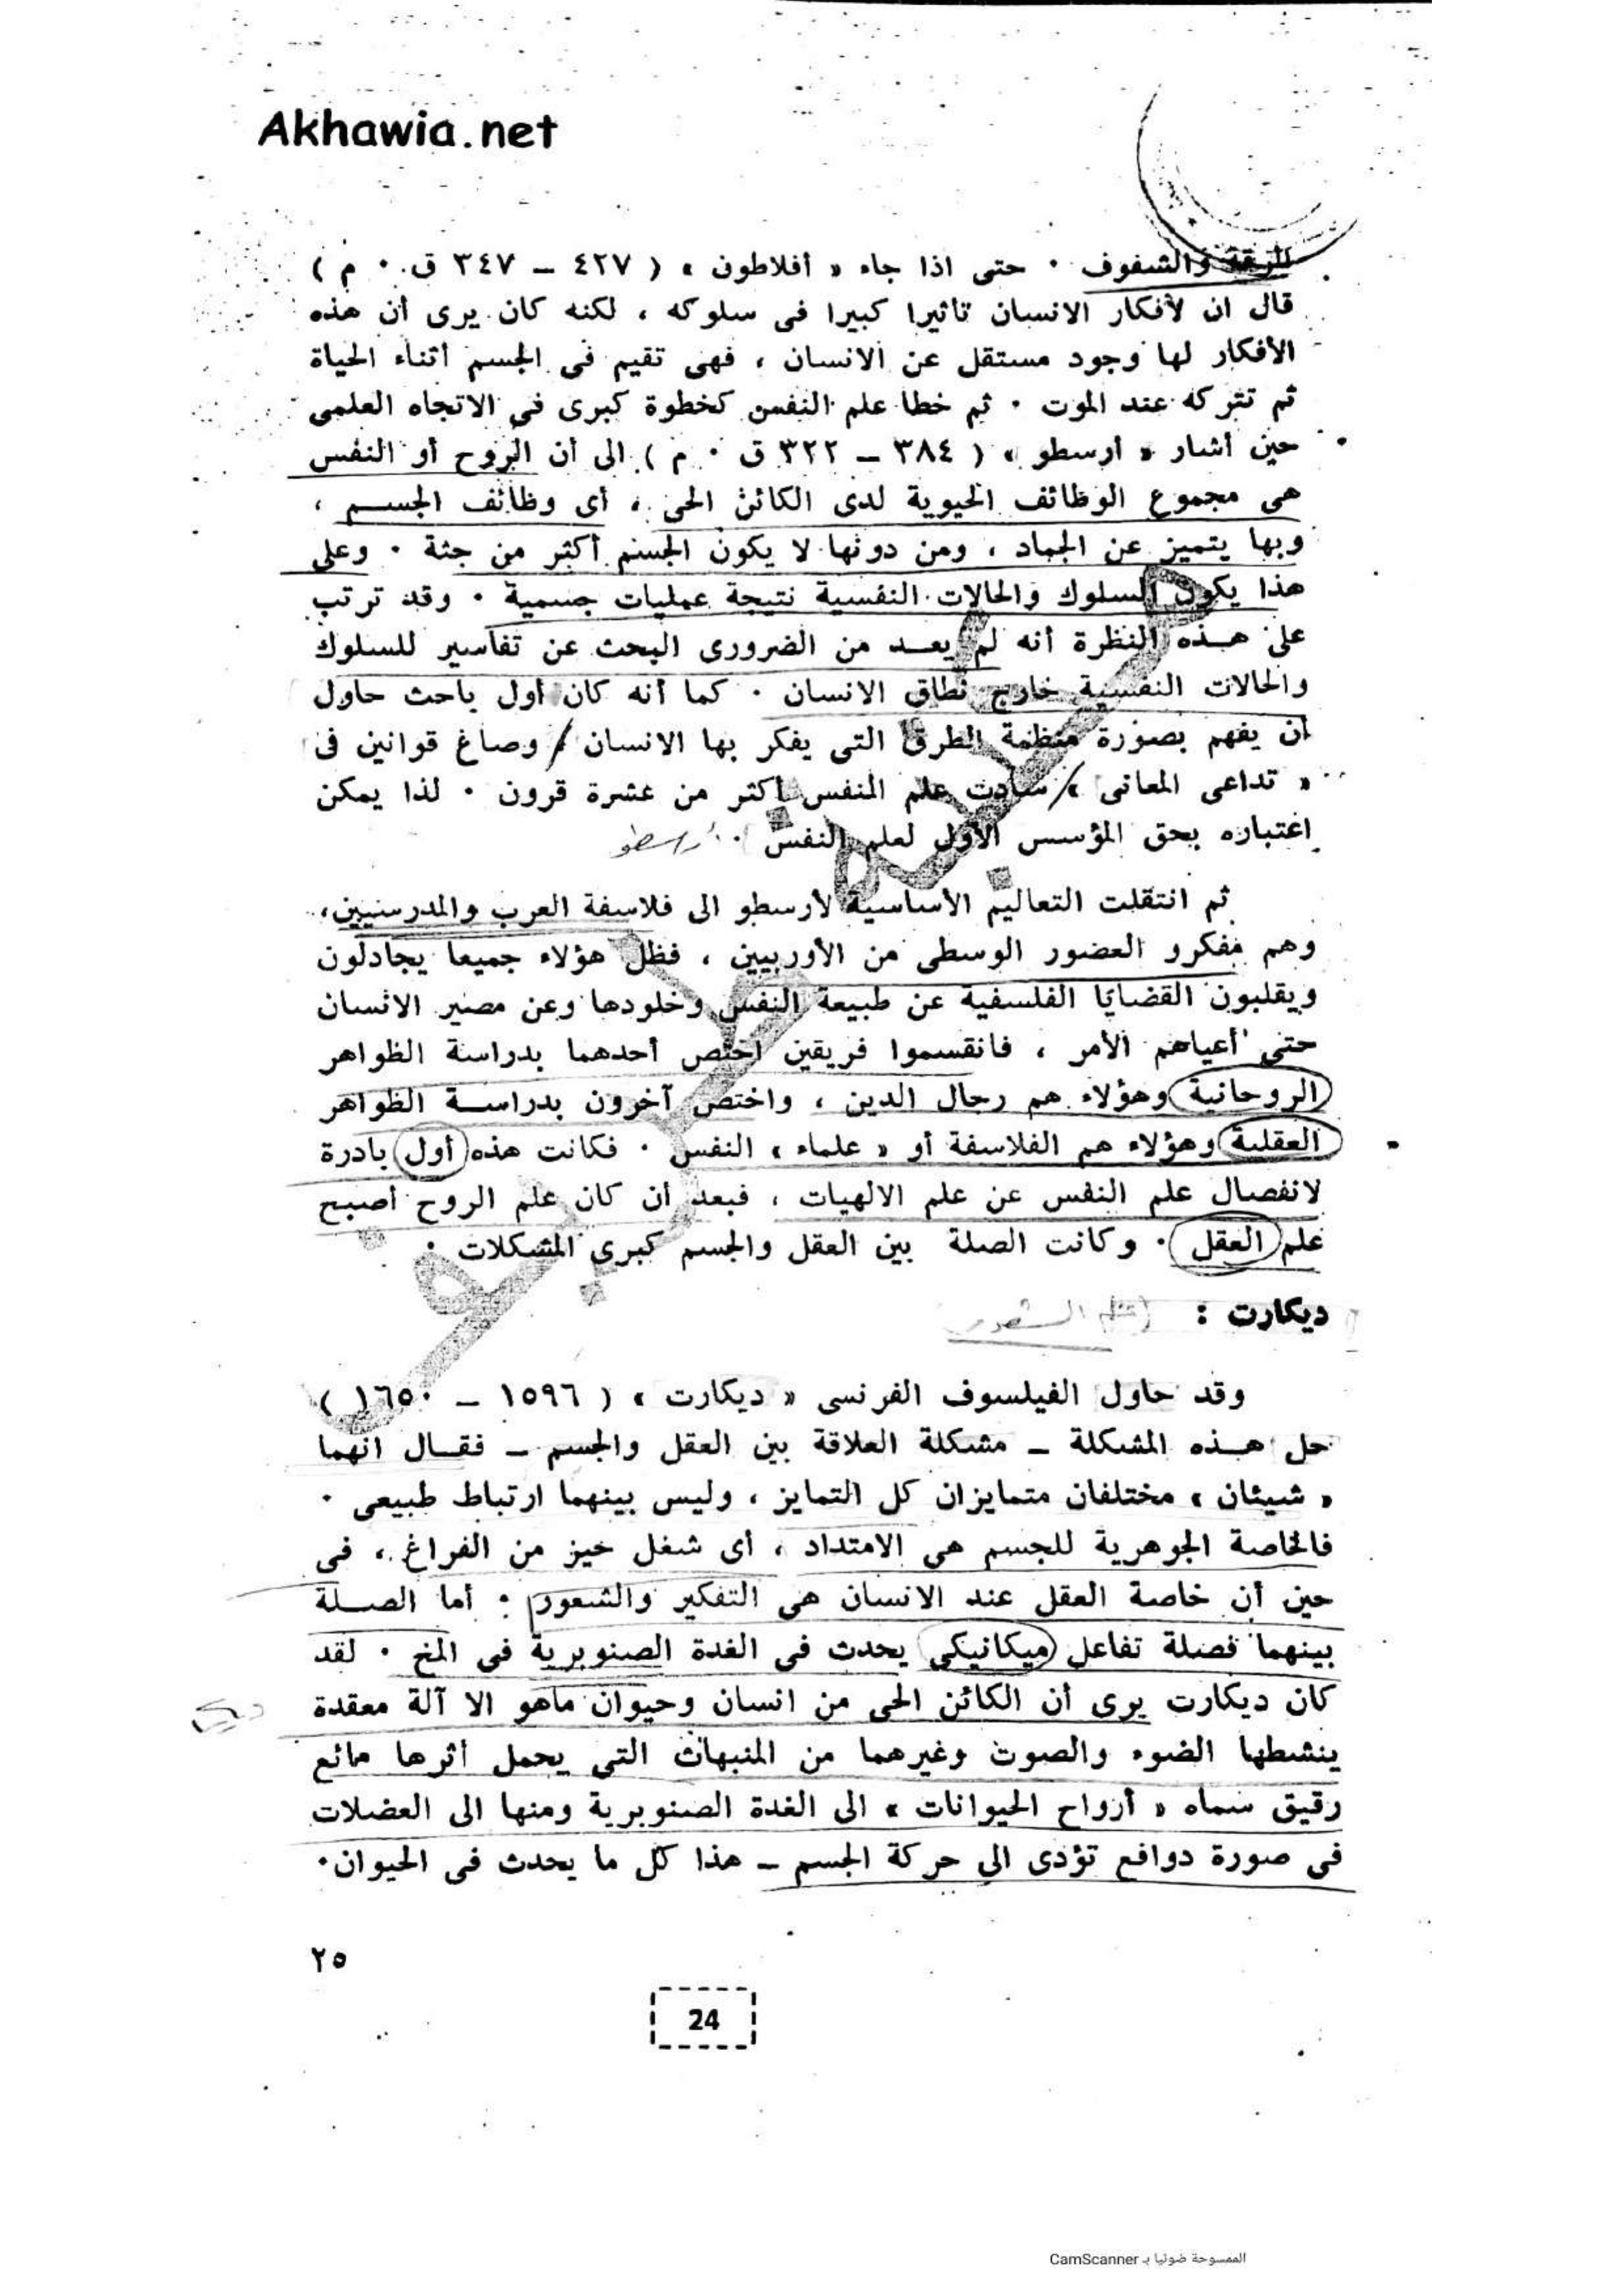 Akhawia.net
الرقة والشفوف . حتى اذا جاء « أفلاطون » ( ٤٢٧ – ٣٤٧ ق . م )
قال ان لأفكار الانسان تأثيرا كبيرا فى سلوكه ، لكنه كان يرى أن هذه
الأفكار لها وجود مستقل عن الانسان ، فهى تقيم فى الجسم أثناء الحياة
ثم تتركه عند الموت . ثم خطا علم النفس كخطوة كبرى فى الاتجاه العلمى
حين أشار « أرسطو » ( ٣٨٤ – ٣٢٢ ق . م ) الى أن الروح أو النفس
هى مجموع الوظائف الحيوية لدى الكائن الحى ، أى وظائف الجسم ،
وبها يتميز عن الجماد ، ومن دونها لا يكون الجسم أكثر من جثة . وعلى
هذا يكون السلوك والحالات النفسية نتيجة عمليات جسمية . وقد ترتب
على هذه النظرة أنه لم يعد من الضرورى البحث عن تفاسير للسلوك
والحالات النفسية خارج نطاق الانسان . كما أنه كان أول باحث حاول
أن يفهم بصورة منظمة الطرق التى يفكر بها الانسان / وصاغ قوانين فى
« تداعى المعانى » / سادت علم النفس أكثر من عشرة قرون . لذا يمكن
اعتباره بحق المؤسس الأول لعلم النفس . أرسطو
ثم انتقلت التعاليم الأساسية لأرسطو الى فلاسفة العرب والمدرسيين،
وهم مفكرو العصور الوسطى من الأوربيين ، فظل هؤلاء جميعا يجادلون
ويقلبون القضايا الفلسفية عن طبيعة النفس وخلودها وعن مصير الانسان
حتى أعياهم الأمر ، فانقسموا فريقين اختص أحدهما بدراسة الظواهر
الروحانية وهؤلاء هم رجال الدين ، واختص آخرون بدراسة الظواهر
العقلية وهؤلاء هم الفلاسفة أو « علماء » النفس . فكانت هذه أول بادرة
لانفصال علم النفس عن علم الالهيات ، فبعد أن كان علم الروح أصبح
علم العقل . وكانت الصلة بين العقل والجسم كبرى المشكلات .
ديكارت : (علم الشعور
وقد حاول الفيلسوف الفرنسى « ديكارت » ( ١٥٩٦ – ١٦٥٠ )
حل هذه المشكلة – مشكلة العلاقة بين العقل والجسم – فقال انهما
« شيئان » مختلفان متمايزان كل التمايز ، وليس بينهما ارتباط طبيعى .
فالخاصة الجوهرية للجسم هى الامتداد ، أى شغل حيز من الفراغ ، فى
حين أن خاصة العقل عند الانسان هى التفكير والشعور . أما الصلة
بينهما فصلة تفاعل ميكانيكى يحدث فى الغدة الصنوبرية فى المخ . لقد
كان ديكارت يرى أن الكائن الحى من انسان وحيوان ماهو الا آلة معقدة
ينشطها الضوء والصوت وغيرهما من المنبهات التى يحمل أثرها مائع
رقيق سماه « أرواح الحيوانات » الى الغدة الصنوبرية ومنها الى العضلات
فى صورة دوافع تؤدى الى حركة الجسم – هذا كل ما يحدث فى الحيوان.
٢٥
24
الممسوحة ضوئيا بـ CamScanner